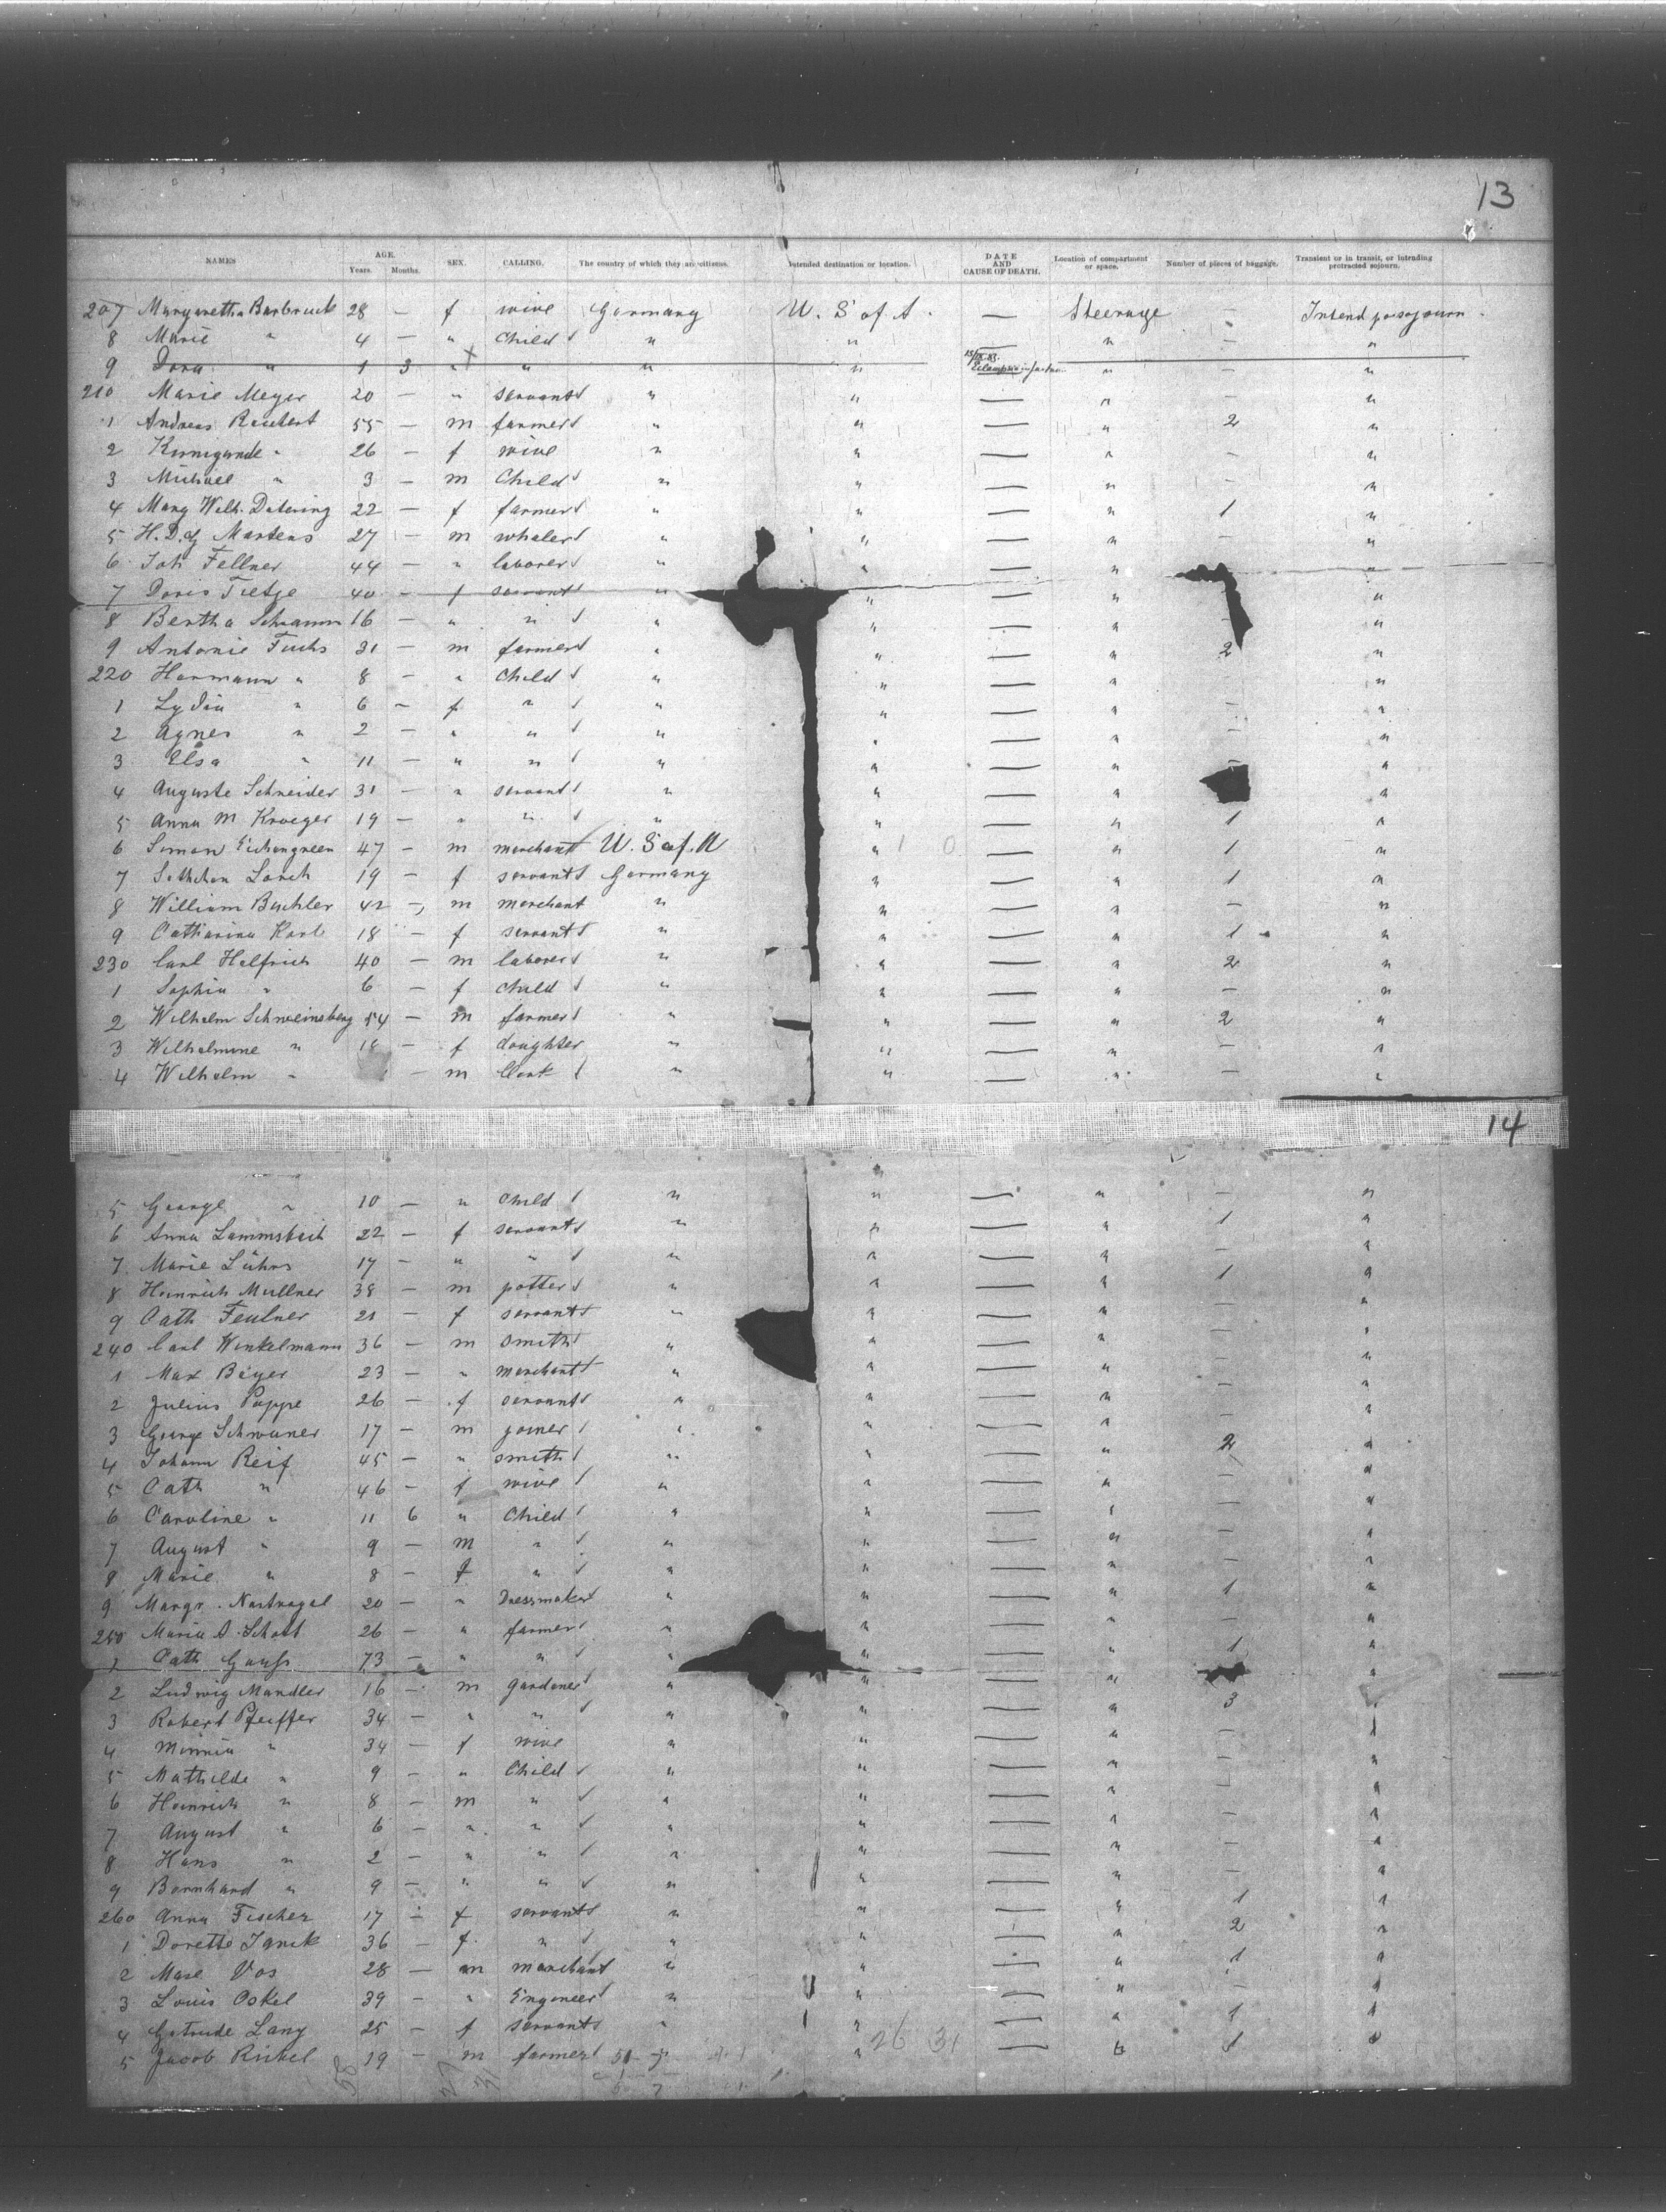 13
NAMES AGE. Years. Months. SEX. CALLING. The country of which they are citizens. Intended destination or location. DATE AND CAUSE OF DEATH. Location of compartment or space. Number of pieces of baggage. Transient or in transit, or intending protracted sojourn.
207 Margaretha Barbruck 28 — f wive Germany U. S of A. — Steerage —
8 Marie " 4 — " Child " " — " — "
9 Dora " 1 3 " " " " " — "
210 Marie Meyer 20 — " servant " " — " — "
1 Andreas Reichert 55 — m farmer " " — " 2 "
2 Kunigunde " 26 — f wive " " — " — "
3 Michael " 3 — m Child " " — " — "
4 Marg Wilh. Datering 22 — f farmer " " — " 1 "
5 H. D. Martens 27 — m whaler " " — " — "
6 Joh Fellner 44 — " laborer " " — " "
7 Doris Tietje 40 — f servant " " — " "
8 Bertha Schramm 16 — " " " " — " "
9 Antonie Fuchs 31 — m farmer " " — " 2 "
220 Hermann " 8 — " Child " " — " "
1 Lydia " 6 — f " " " — " — "
2 Agnes " 2 — " " " " — " — "
3 Elsa " 11 — " " " " — " — "
4 Auguste Schneider 31 — " servant " " — " "
5 Anna M Kroeger 19 — " " " " — " 1 "
6 Simon Eichengreen 47 — m merchant U. S of A " 1 0 — " 1 "
7 Lorch 19 — f servant Germany " — " 1 "
8 William Buchler 42 — m merchant " " — " — "
9 Catharina Karl 18 — f servant " " — " 1 "
230 Carl Helfrich 40 — m laborer " " — " 2 "
1 Sophia " 6 — f Child " " — " — "
2 Wilhelm Schweinsberg 54 — m farmer " " — " 2 "
3 Wilhelmine " 18 — f daughter " " — " — "
4 Wilhelm " — m Clerk " " — " — "
14
5 George " 10 — " Child " " — " — "
6 Anna 22 — f servant " " — " 1 "
7 Marie Lührs 17 — " " " " — " — "
8 Heinrich Mullner 38 — m potter " " — " 1 "
9 Cath Feulner 21 — f servant " " — " — "
240 Carl Winkelmann 36 — m smith " " — " — "
1 Max Beyer 23 — " merchant " " — " — "
2 Julius Poppe 26 — f servant " " — " — "
3 George Schwaner 17 — m joiner " " — " — "
4 Johann Reif 45 — " smith " " — " 2 "
5 Cath " 46 — f wive " " — " — "
6 Caroline " 11 6 " Child " " — " — "
7 August " 9 — m " " " — " — "
8 Marie " 8 — f " " " — " — "
9 Margr. Nastvogel 20 — " Dressmaker " " — " 1 "
250 Maria A. Schott 26 — " farmer " " — " — "
1 Cath 73 — " " " " — " 1 "
2 Ludwig Mandler 16 — m gardener " " — " "
3 Robert Pfeiffer 34 — " " " " — " 3
4 Minnia " 34 — f wive " " — " —
5 Mathilde " 9 — " Child " " — " — "
6 Heinrich " 8 — m " " " — " — "
7 August " 6 — " " " " — " — "
8 Hans " 2 — " " " " — " — "
9 Bernhard " 9 — " " " " — " — "
260 Anna Fischer 17 — f servant " " — " 1 "
1 Dorette Janck 36 — f " " " — " 2 "
2 Vos 28 — m merchant " " — " 1 "
3 Louis Oskel 39 — " Engineer " " — " — "
4 Gertrude Lang 25 — f servant " " — " 1 "
5 Jacob Rickel 19 — m farmer " 26 31 — " 1 "